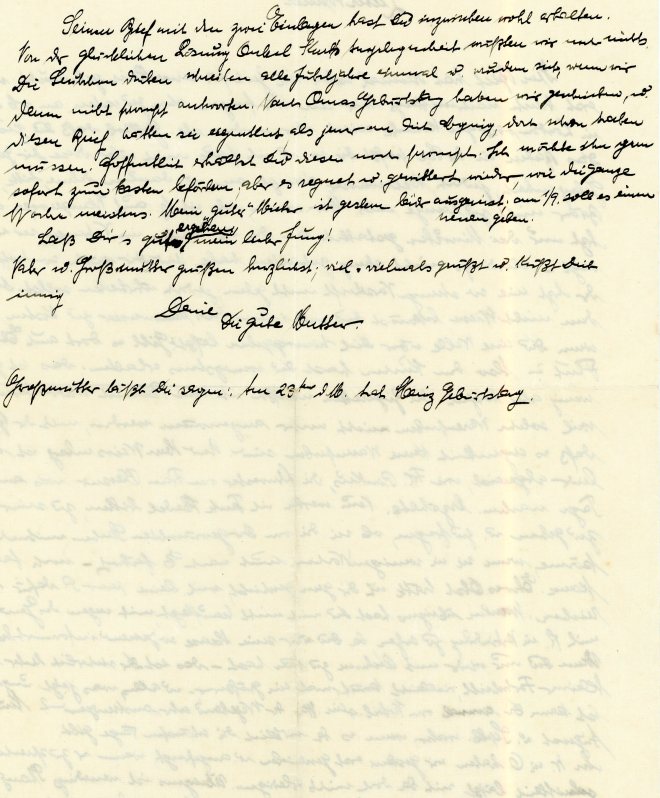 Seinen Brief mit den zwei Einlagen hast Du inzwischen wohl erhalten.
Von der glücklichen Lösung Onkel Angelegenheit wußten wir noch nichts.
Die drüben schreiben alle Jubeljahre einmal u. wundern sich, wenn wir
denen nicht prompt antworten. Nach Omas Geburtstag haben wir geschrieben, u.
diesen Brief hätten sie eigentlich als jener an Dich abging, dort schon haben
müssen. Hoffentlich erhältst Du diesen noch prompt. Ich möchte ihn gern
sofort zum Kasten befördern, aber es regnet u. gewittert wieder, wie die ganze
Woche meistens. Mein „guter" Mieter ist gestern leider ausgereist; am 1/9. soll es einen
neuen geben.
Laß Dir's gut ergehen, mein lieber Jung!
Vater u. Großmutter grüßen herzlichst; viel-vielmals grüßt u. küßt Dich
innig
Deine
Die gute Mutter.
Großmutter läßt Dir sagen: Am 23ten d. M. hat Heinz Geburtstag.